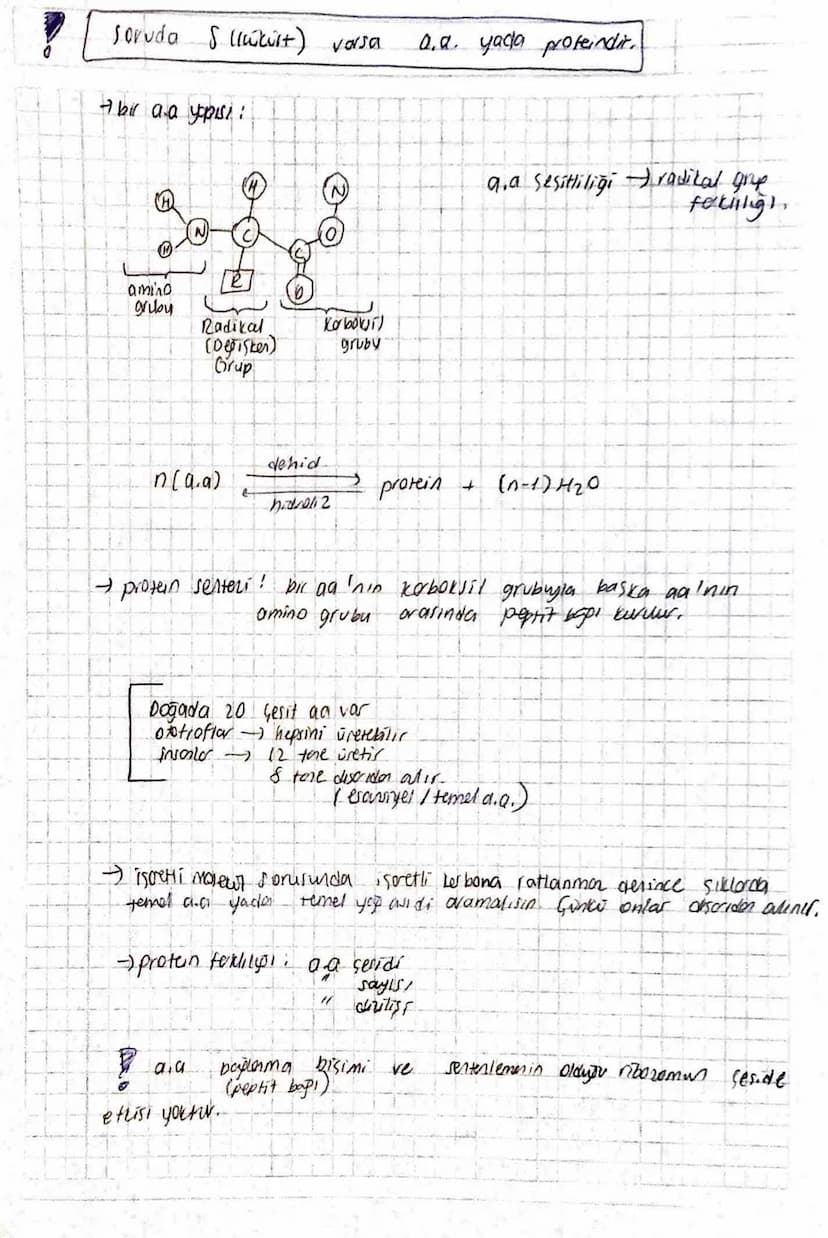 ! soruda S (kükürt) varsa a.a. yada proteindir.
→ bir a.a yapısı :
a.a çeşitliliği → radikal grup
farklılığı.
H H N
H N C O
R C O
amino
grubu
Radikal
(Değişken)
Grup
Karboksil
grubu
n(a.a) dehid. hidroliz protein + (n-1) H2O
→ protein sentezi ! bir aa'nın karboksil grubuyla başka aa'nın
amino grubu arasında peptit bağı kurulur.
Doğada 20 çeşit aa var
ototroflar → hepsini üretebilir
insanlar → 12 tane üretir
8 tane dışarıdan alır.
(esansiyel / temel a.a.)
→ işaretli molekül sorusunda işaretli karbona rastlanmaz denince şıklarda
temel a.a yada temel yağ asidi aramalısın. Çünkü onlar dışarıdan alınır.
→ protein farklılığı : a.a çeşidi
" sayısı
" dizilişi
! a.a bağlanma biçimi ve sentezlemenin olduğu ribozomun çeşide
(peptit bağı)
etkisi yoktur.